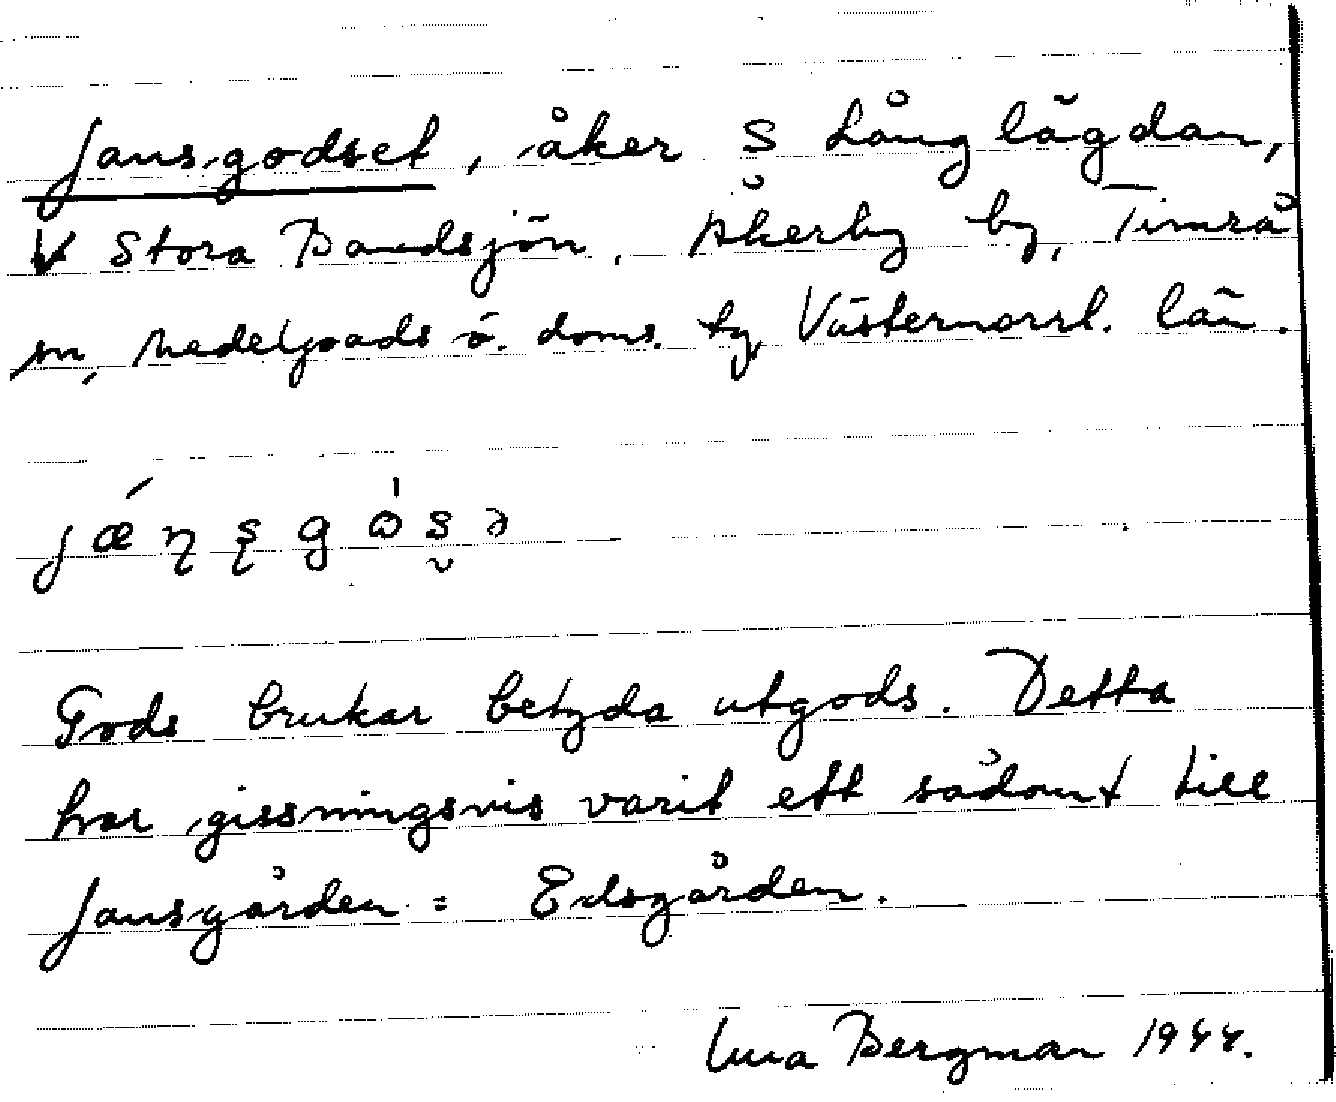 Jansgodset, åker S Långlägdan,
V Stora Bandsjön. Åkerby by, Timrå
sn, Medelpads ö. doms. tg, Västernorrl. län.
jǽŋ̨ş gòs̬ə
Gods brukar betyda utgods. Detta
har gissningsvis varit ett sådant till
Jansgården = Edsgården.
Bergman 1944.